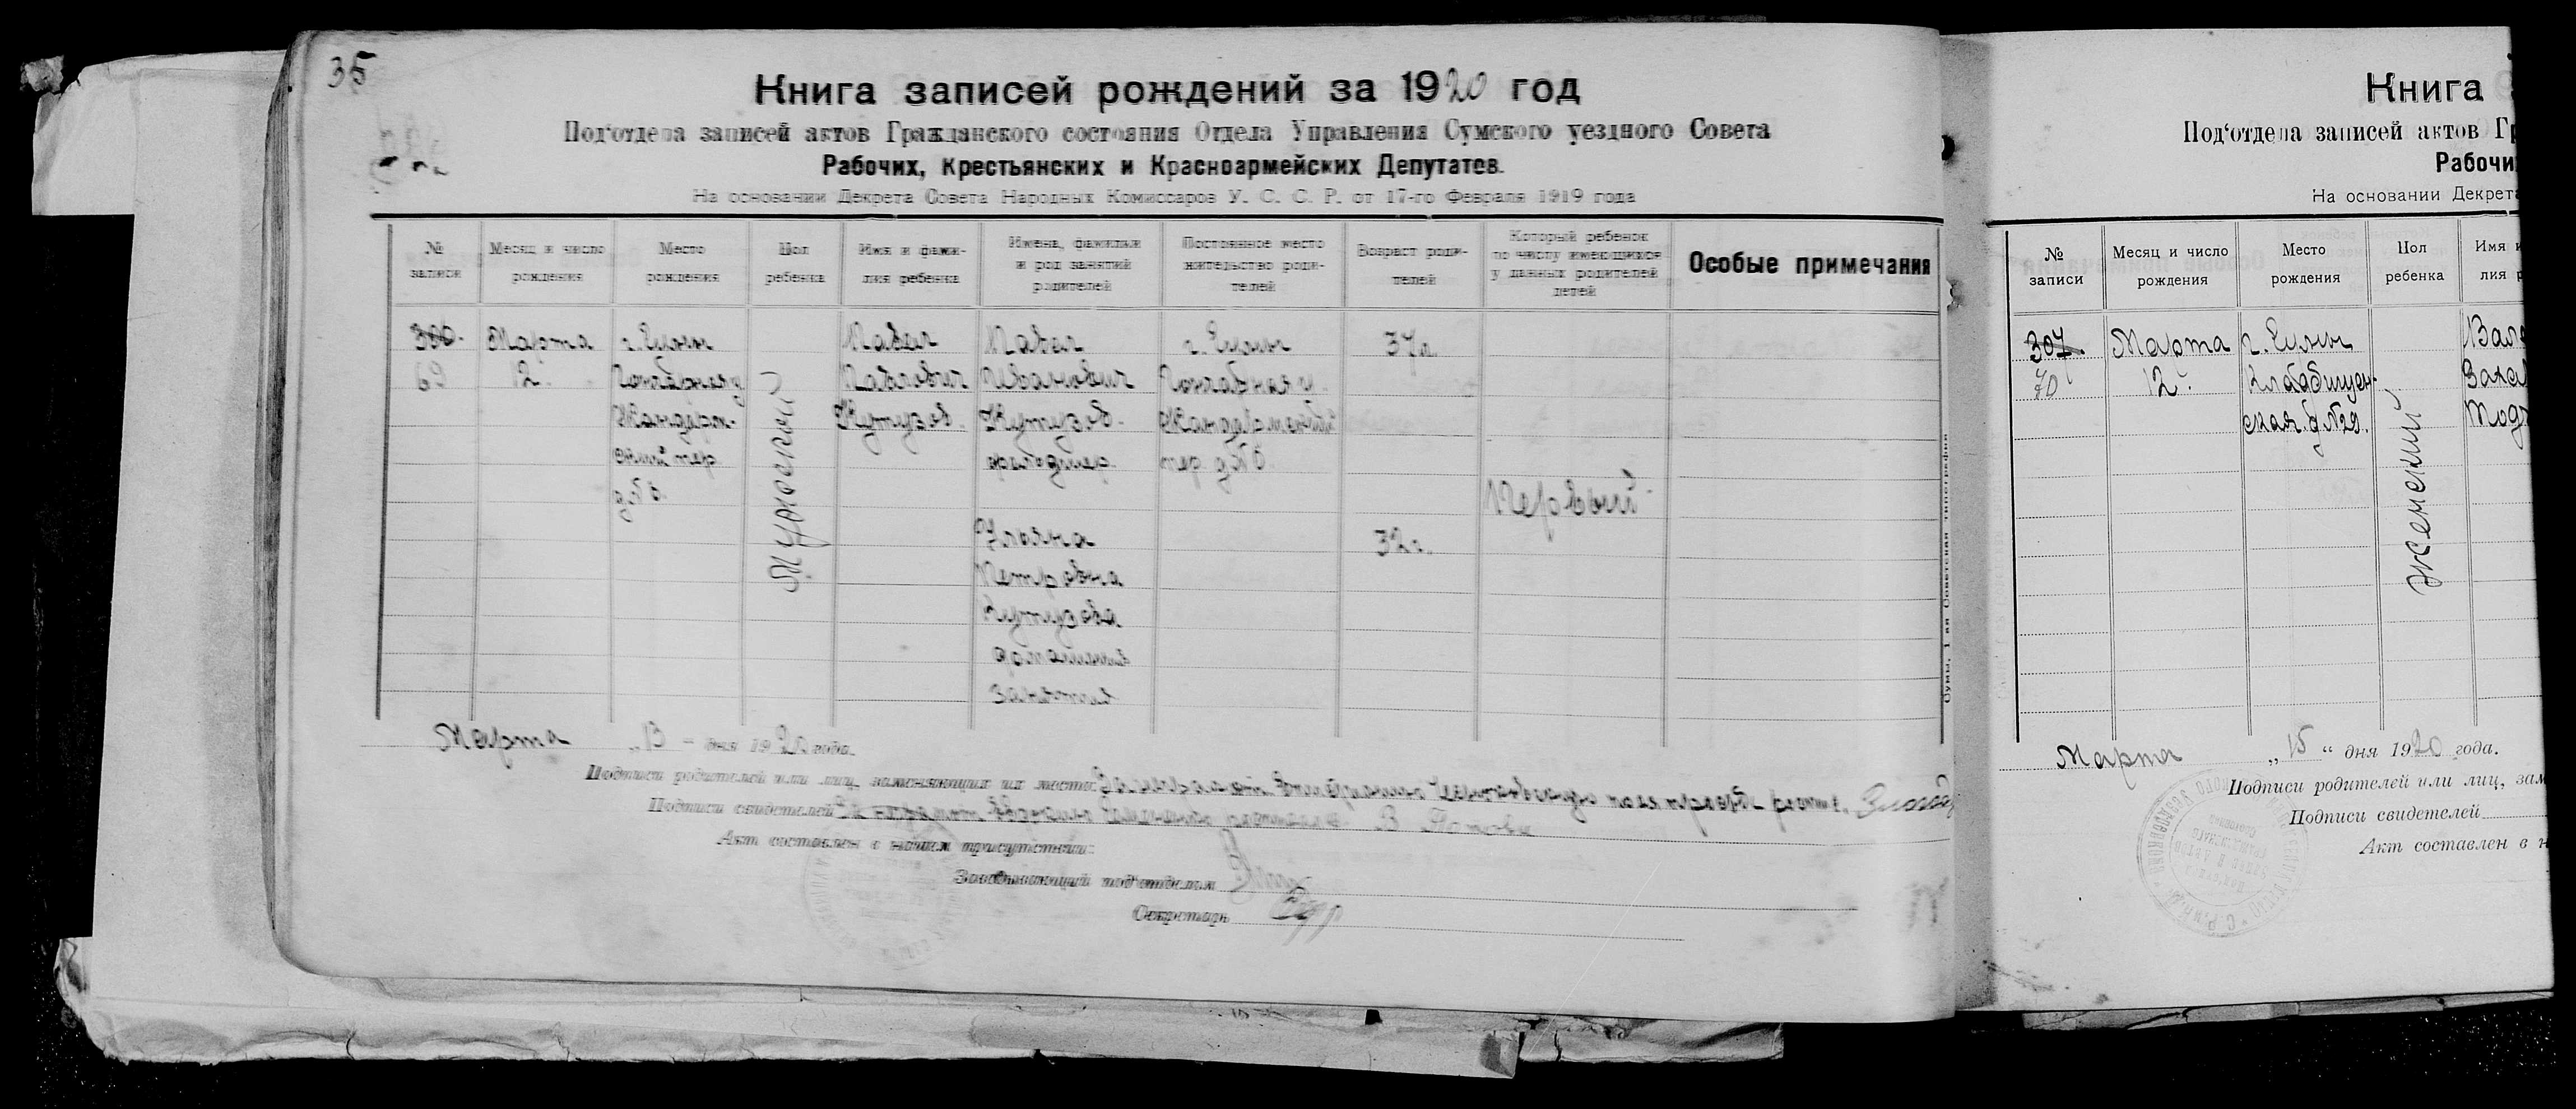 35
Книга записей рождений за 1920 год
Под‘отдела записей актов Гражданского состояния Отдела Управления Сумского уездного Совета
Рабочих, Крестьянских и Красноармейских Депутатов.
На основании Декрета Совета Народных Комиссаров У. С. С. Р. от 17-го Февраля 1919 года
№ записи
Месяц и число рождения
Место рождения
Пол ребенка
Имя и фами-
лия ребенка
Имена, фамилии
и род занятий
родителей
Постоянное место
жительство роди-
телей
Возраст роди-
телей
Который ребенок
по числу имеющихся
у данных родителей
детей
Особые примечания
306.
69
Марта
12.
г. Сумы
Гончарная у
Жандарм-
ский пер.
д № 6.
Мужской
Павел
Павлович
Кутузов.
Павел
Иванович
Кутузов.
Ульяна
Петровна
Кутузова
домашния
занятия
г. Сумы
Гончарная у.
Жандармский
пер. д № 6.
37 л.
32 г.
Первый
Марта „13 - дня 1920 года.
Подписи родителей или лиц, заменяющих их место:
Подписи свидетелей
Акт составлен в нашем присутствии:
Заведывающий под‘отделом
Секретарь
Сумы, 1-ая Советская типография
Книга
Под‘отдела записей актов Гр
Рабочи
На основании Декрета
№ записи
Месяц и число рождения
Место рождения
Пол ребенка
Имя и
лия р
307.
70
Марта
12.
г. Сумы,
ская. д № 29.
женский
Марта „15“ дня 1920 года.
Подписи родителей или лиц, зам
Подписи свидетелей
Акт составлен в н